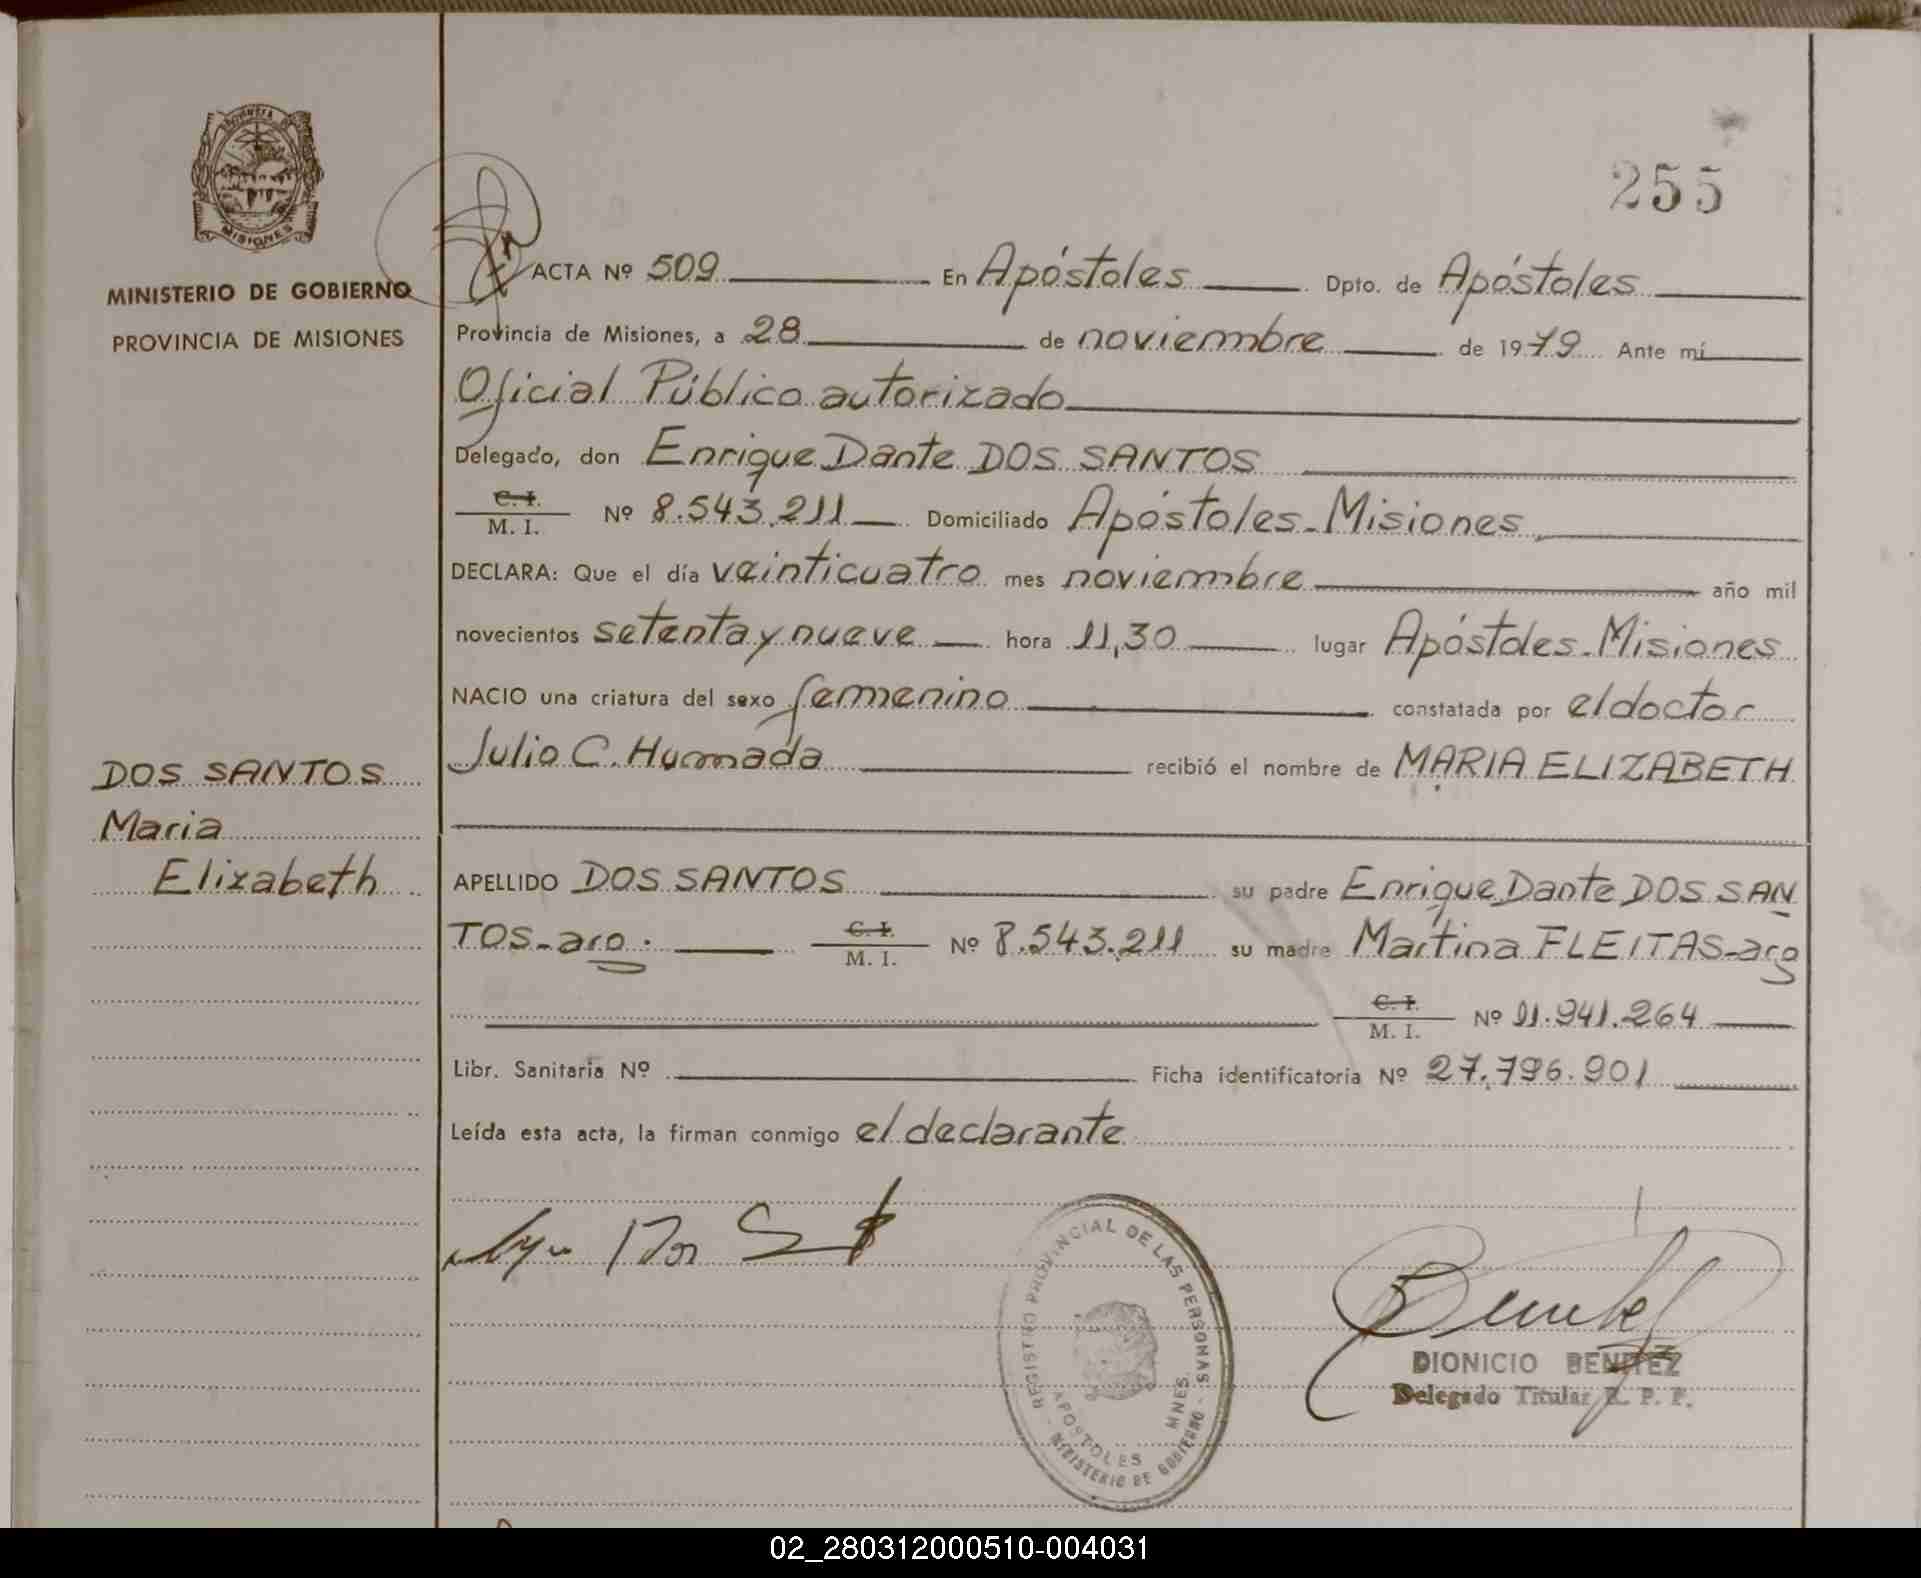 255
MISIONES
MINISTERIO DE GOBIERNO
PROVINCIA DE MISIONES
ACTA Nº 509 En Apóstoles Dpto. de Apóstoles
Provincia de Misiones, a 28 de noviembre de 1979 Ante mí
Oficial Público autorizado
Delegado, don Enrique Dante DOS SANTOS
C. I.
M. I. Nº 8.543.211 Domiciliado Apóstoles-Misiones
DECLARA: Que el día veinticuatro mes noviembre año mil
novecientos setenta y nueve hora 11,30 lugar Apóstoles-Misiones
NACIO una criatura del sexo femenino constatada por el doctor
Julio C. Humada recibió el nombre de MARIA ELIZABETH
DOS SANTOS
Maria
Elizabeth
APELLIDO DOS SANTOS su padre Enrique Dante DOS SAN
TOS-arg. C. I. M. I. Nº 8.543.211 su madre Martina FLEITAS-arg
C. I.
M. I. Nº 11.941.264
Libr. Sanitaria Nº Ficha identificatoria Nº 27.796.901
Leída esta acta, la firman conmigo el declarante
REGISTRO PROVINCIAL DE LAS PERSONAS
APOSTOLES MNES.
MINISTERIO DE GOBIERNO
DIONICIO BENITEZ
Delegado Titular R. P. P.
02_280312000510-004031